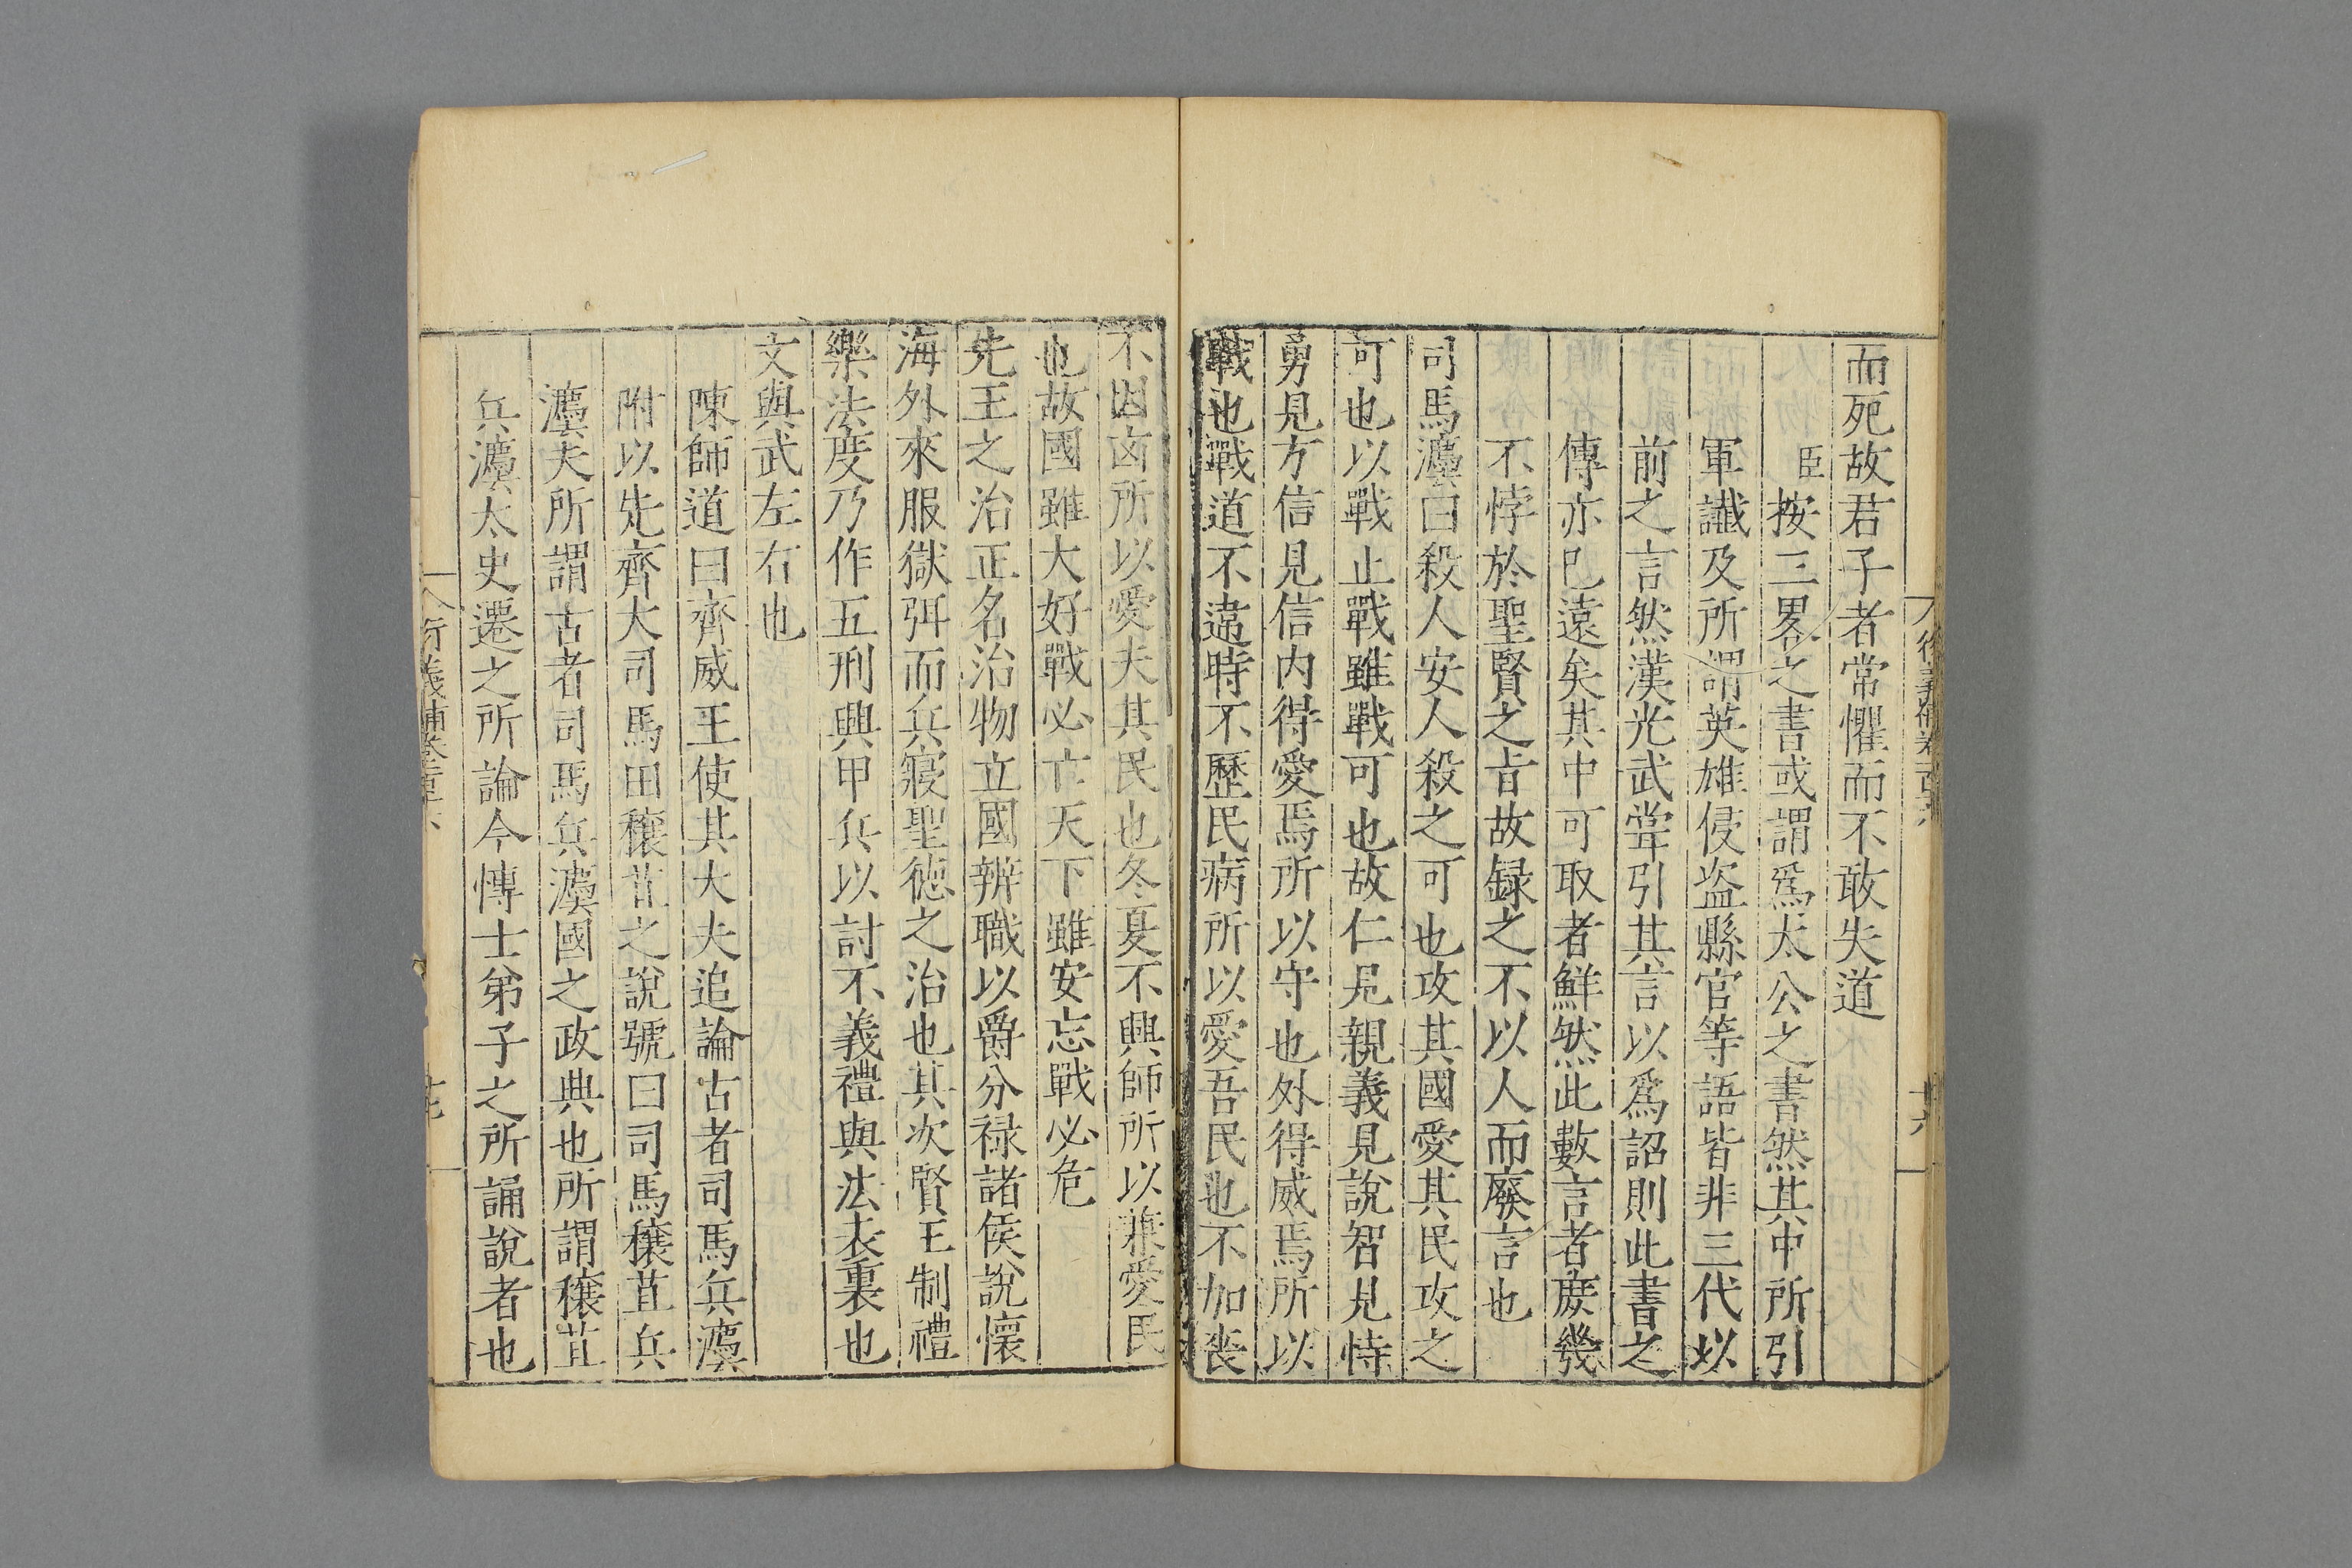 而死故君子者常懼而不敢失道
臣按三畧之書或謂爲太公之書然其中所引
軍讖及所謂英雄侵盗縣官等語皆非三代以
前之言然漢光武甞引其言以爲詔則此書之
傳亦已遠矣其中可取者鮮然此數言者庻幾
不悖於聖賢之㫖故録之不以人而廢言也
司馬灋曰殺人安人殺之可也攻其國愛其民攻之
可也以戰止戰雖戰可也故仁見親義見說智見恃
勇見方信見信内得愛焉所以守也外得威焉所以
戰也戰道不違時不歷民病所以愛吾民也不加喪
不因凶所以愛夫其民也冬夏不興師所以兼愛民
也故國雖大好戰必亡天下雖安忘戰必危
先王之治正名治物立國辨職以爵分禄諸侯說懷
海外來服獄弭而兵寢聖德之治也其次賢王制禮
樂法度乃作五刑興甲兵以討不義禮與法表裏也
文與武左右也
陳師道曰齊威王使其大夫追論古者司馬兵灋
附以先齊大司馬田穰苴之說號曰司馬穰苴兵
灋夫所謂古者司馬兵灋國之政典也所謂穰苴
兵灋太史遷之所論今博士弟子之所誦說者也